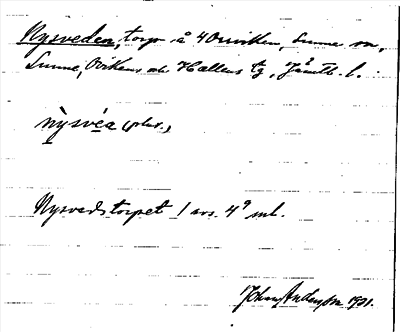 Nysveden, torp å 4 Orrviken, Sunne sn,
Sunne, Ovikens och Hallens tg, Jämtl. l.
nỳsvéa (plur.)
Nysvedstorpet 1 avs. 4⁹ ml.
John Anderson 1921.